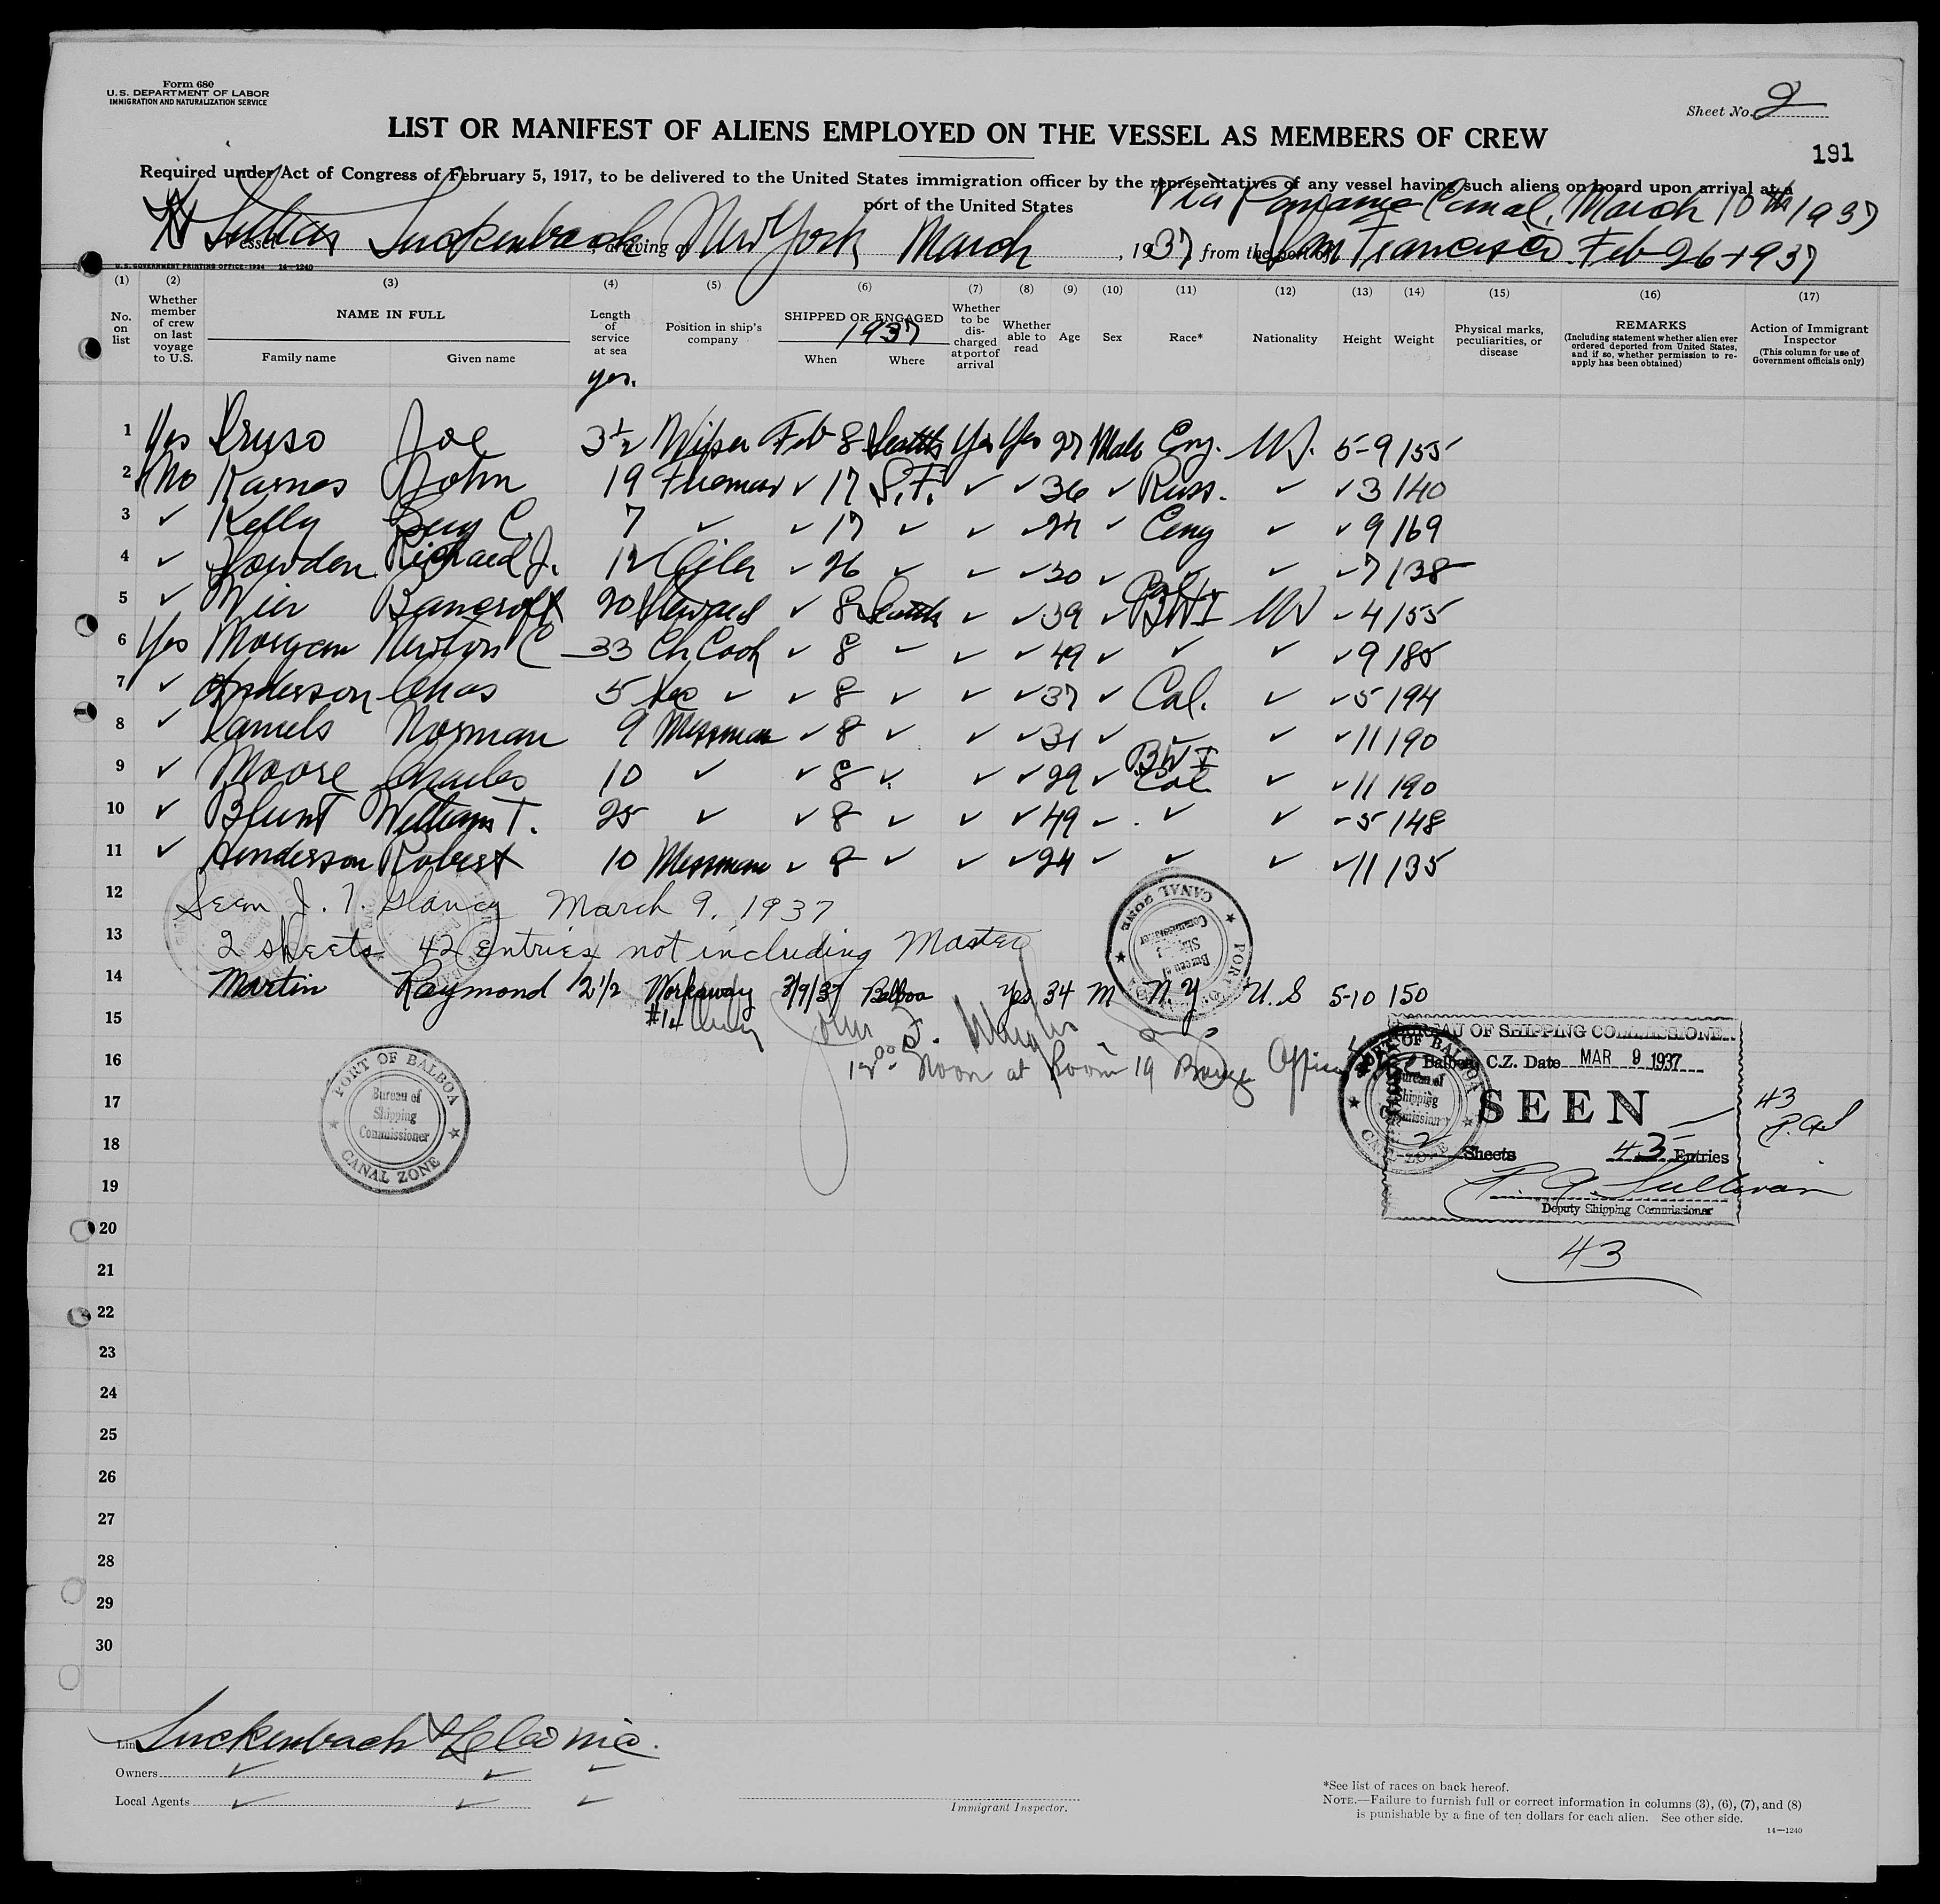 Form 680
U.S. DEPARTMENT OF LABOR
IMMIGRATION AND NATURALIZATION SERVICE
Sheet No. 2
LIST OR MANIFEST OF ALIENS EMPLOYED ON THE VESSEL AS MEMBERS OF CREW
191
Required under Act of Congress of February 5, 1917, to be delivered to the United States immigration officer by the representatives of any vessel having such aliens on board upon arrival at a
port of the United States
Via Panama Canal, March 10th 1937
Vessel Luckenbach, arriving at New York March, 1937 from the port of San Francisco Feb 26-1937
U.S. GOVERNMENT PRINTING OFFICE: 1934 14-1240
(1) (2) (3) (4) (5) (6) (7) (8) (9) (10) (11) (12) (13) (14) (15) (16) (17)
No. on list
Whether member of crew on last voyage to U.S.
NAME IN FULL
Family name Given name
Length of service at sea
yrs.
Position in ship's company
SHIPPED OR ENGAGED
1937
When Where
Whether to be discharged at port of arrival
Whether able to read
Age
Sex
Race*
Nationality
Height
Weight
Physical marks, peculiarities, or disease
REMARKS
(Including statement whether alien ever ordered deported from United States, and if so, whether permission to reapply has been obtained)
Action of Immigrant Inspector
(This column for use of Government officials only)
1 Yes Joe 3½ Wiper Feb 8 Seattle Yes Yes 27 Male Eng. 5-9 155
2 No Karnes John 19 Fireman ✓ 17 S.F. ✓ ✓ 36 ✓ Russ. ✓ ✓ 3 140
3 ✓ Kelly C. 7 ✓ ✓ 17 ✓ ✓ ✓ ✓ Eng ✓ ✓ 9 169
4 ✓ Richard J. 12 Oiler ✓ 26 ✓ ✓ ✓ 30 ✓ ✓ ✓ ✓ 7 138
5 ✓ Weir Bancroft 20 Steward ✓ 8 Seattle ✓ ✓ 39 ✓ BWI ✓ 4 155
6 Yes Morgan Newton C 33 Ch Cook ✓ 8 ✓ ✓ ✓ 49 ✓ ✓ ✓ ✓ 9 185
7 ✓ Anderson Chas 5 Sec ✓ ✓ 8 ✓ ✓ ✓ 37 ✓ Col. ✓ ✓ 5 194
8 ✓ Norman 9 Messman ✓ 8 ✓ ✓ ✓ 31 ✓ ✓ ✓ ✓ 11 190
9 ✓ Moore Charles 10 ✓ ✓ 8 ✓ ✓ ✓ 29 ✓ BWI Col. ✓ ✓ 11 190
10 ✓ Blunt William T. 25 ✓ ✓ 8 ✓ ✓ ✓ 49 ✓ ✓ ✓ 5 148
11 ✓ Henderson Robert 10 Messman ✓ 8 ✓ ✓ ✓ 24 ✓ ✓ ✓ ✓ 11 135
12 Seen J. T. Glancy March 9, 1937
13 2 sheets 42 entries not including Master
14 Martin Raymond 2½ Workaway 3/9/37 Balboa Yes 34 M N.Y U.S 5-10 150
15 #14 Only John F.
16 12:00 Noon at Room 19 Barge Office
17
18
19
20
21
22
23
24
25
26
27
28
29
30
PORT OF BALBOA
Bureau of
Shipping
Commissioner
CANAL ZONE
PORT OF BALBOA
Bureau of
Shipping
Commissioner
CANAL ZONE
PORT OF BALBOA
Bureau of
Shipping
Commissioner
CANAL ZONE
BUREAU OF SHIPPING COMMISSIONER
Balboa, C.Z. Date MAR 9 1937
SEEN
2 Sheets 43 Entries
Sullivan
Deputy Shipping Commissioner
43
43
Line Luckenbach
Owners ✓ ✓ ✓
Local Agents ✓ ✓ ✓
Immigrant Inspector.
*See list of races on back hereof.
NOTE.—Failure to furnish full or correct information in columns (3), (6), (7), and (8)
is punishable by a fine of ten dollars for each alien. See other side.
14-1240